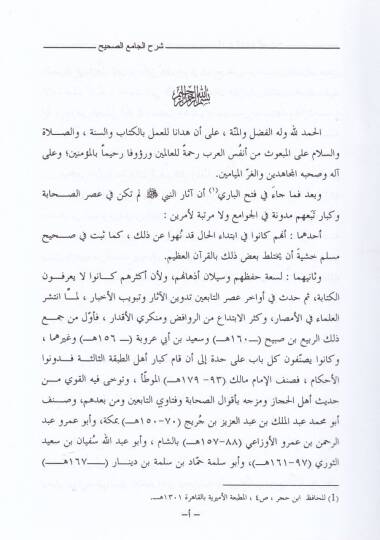 شرح الجامع الصحيح
بسم الله الرحمن الرحيم
الحمد لله وله الفضل والمنّة ، على أن هدانا للعمل بالكتاب والسنة ، والصـلاة
والسلام على المبعوث من أنفُس العرب رحمةً للعالمين ورؤوفا رحيماً بالمؤمنين؛ وعلى
آله وصحبه المجاهدين والغرّ الميامين.
وبعد فما جاءَ في فتح الباري(١) أن آثار النبي ﷺ لم تكن في عصر الصحـابة
وكبار تبّعهم مدونة في الجوامع ولا مرتبة لأمرين :
أحدهما : أنهم كانوا في ابتداء الحال قد نُهوا عن ذلك ، كما ثبت في صحيح
مسلم خشيةَ أن يختلط بعض ذلك بالقرآن العظيم.
وثانيهما : لسعة حفظهم وسيلان أذهانهم، ولأن أكثرهم كـانوا لا يعرفـون
الكتابة، ثم حدث في أواخر عصر التابعين تدوين الآثار وتبويب الأخبار ، لمـّا انتشر
العلماء في الأمصار، وكثر الابتداع من الروافض ومنكري الأقدار ، فأوّل من جمـع
ذلك الربيع بن صبيح (ــ١٦٠هـ) وسعيد بن أبي عروبة (ــ ١٥٦هـ) وغيرهما ،
وكانوا يصنّفون كل باب على حدة إلى أن قام كبار أهل الطبقة الثالثـة فـدونوا
الأحكام ، فصنف الإمام مالك (٩٣- ١٧٩هـ) الموطّأ ، وتوخى فيه القوي مـن
حديث أهل الحجاز ومزجه بأقوال الصحابة وفتاوي التابعين ومن بعدهم، وصنـف
أبو محمد عبد الملك بن عبد العزيز بن جُريج (٧٠-١٥٠هـ) بمكة، وأبو عمرو عبد
الرحمن بن عمرو الأوزاعي (٨٨-١٥٧هـ) بالشام ، وأبو عبد الله سُفيان بن سعيد
الثوري (٩٧-١٦١هـ)، وأبو سلمة حمّاد بن سلمة بن دينار (ــ١٦٧هـ)
(1) للحافظ ابن حجر ، ص٤ ، المطبعة الأميرية بالقاهرة ١٣٠١هـ.
- أ -